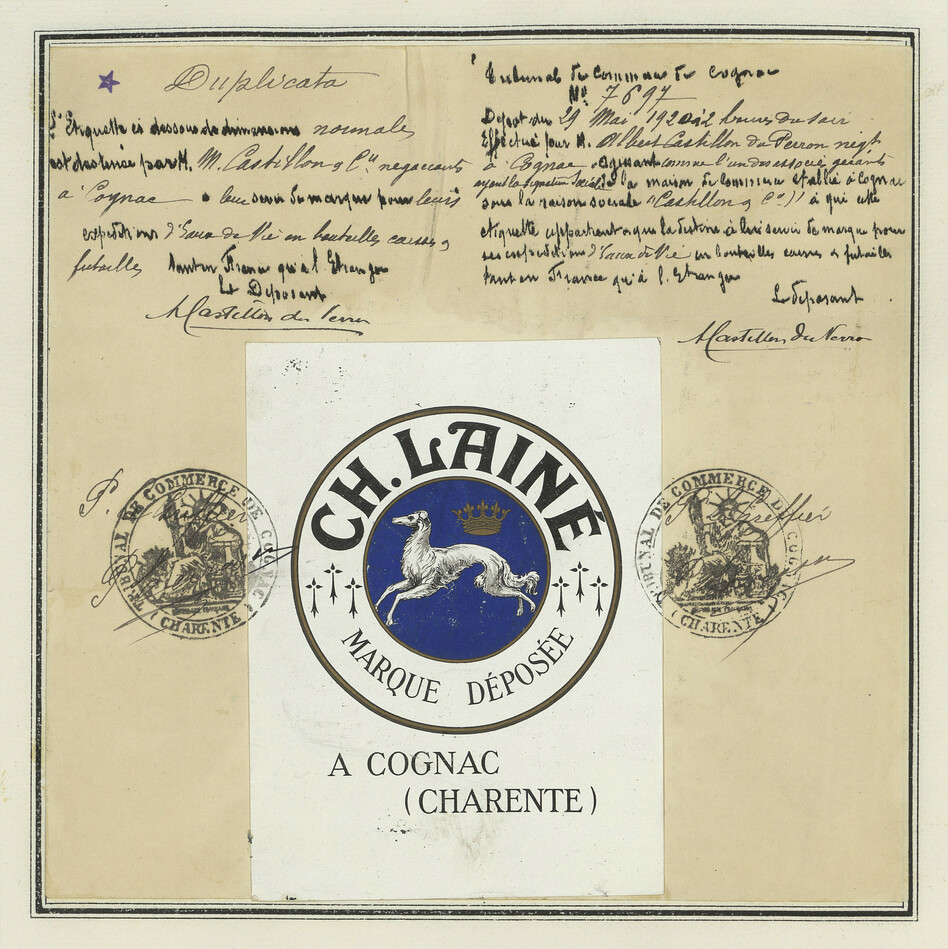 Duplicata
L'Etiquette ci dessous de dimensions normales
est destinée par M. M. Castillon & Cie negociants
à Cognac a leur servir de marque pour leurs
expeditions d'Eaux de Vie en bouteilles caisses &
futailles tant en France qu'à l'Etranger
Le Déposant
ACastillon du Perron
Tribunal de Commerce de Cognac
No 7697
Depot du 29 Mai 1920 à 2 heures du soir
Effectué par M. Albert Castillon du Perron négt
à Cognac agissant comme l'un des associés gérants
ayant la signature sociale de la maison de Commerce établie à Cognac
sous la raison sociale "Castillon & Co" à qui cette
etiquette appartient & qui la destine à lui servir de marque pour
ses expeditions d'Eaux de Vie en bouteilles caisses & futailles
tant en France qu'à l'Etranger
Le déposant
ACastillon du Perron
CH. LAINÉ
MARQUE DÉPOSÉE
A COGNAC
(CHARENTE)
P.
TRIBUNAL DE COMMERCE DE COGNAC
(CHARENTE)
Greffier
TRIBUNAL DE COMMERCE DE COGNAC
(CHARENTE)